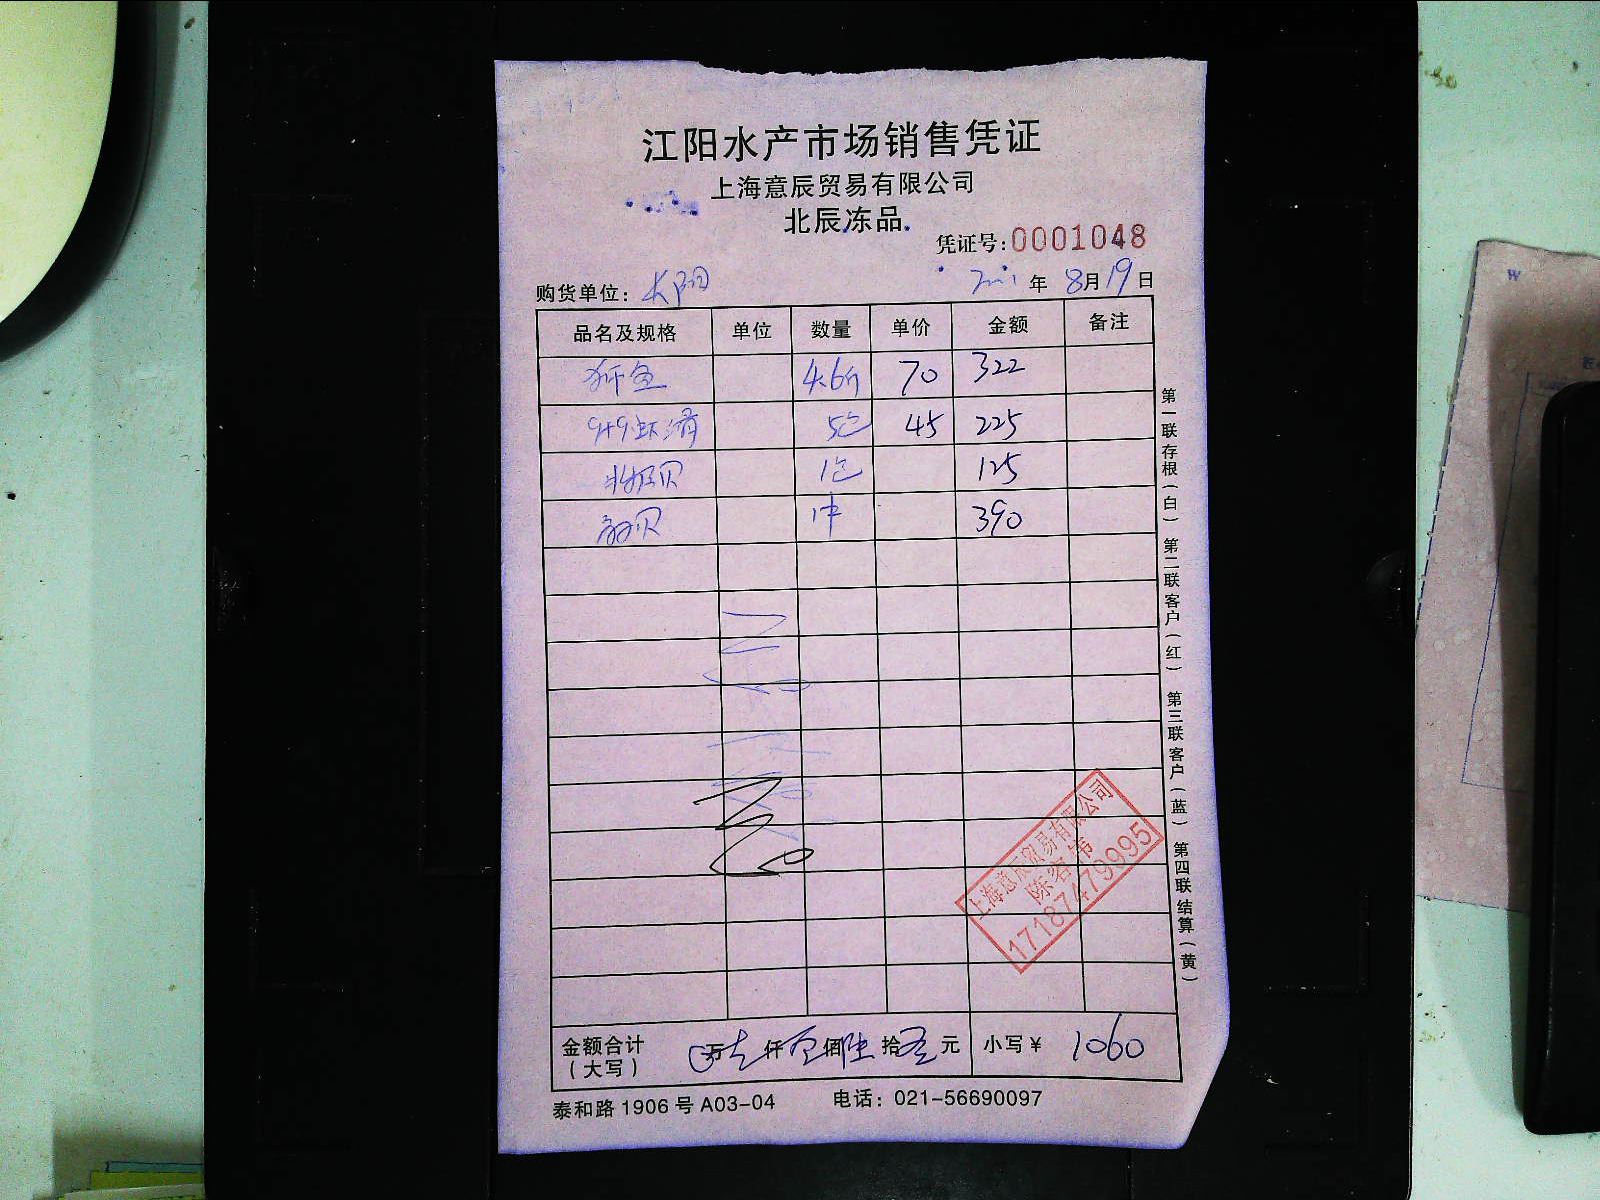 江阳水产市场销售凭证
上海意辰贸易有限公司
北辰冻品.
凭证号:0001048
购货单位: 长阳 年 8月19日
品名及规格 单位 数量 单价 金额 备注
鱼 4.6斤 70 322
949虾滑 5包 45 225
北极贝 1包 125
贝 1件 390
第一联存根(白) 第二联客户(红) 第三联客户(蓝) 第四联结算(黄)
上海意辰贸易有限公司
17187479995
金额合计 万 仟 佰陆 拾 元 小写¥ 1060
(大写)
泰和路1906号A03-04 电话: 021-56690097
W